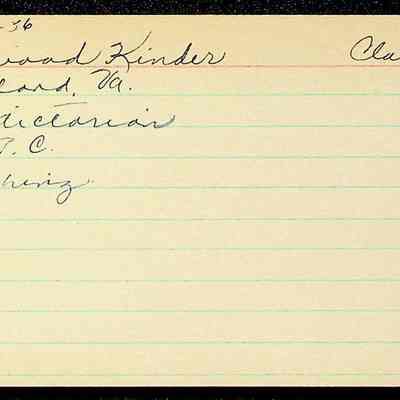 -36
wood Kinder Cla
land, Va.
dictorian
P. C.
hing